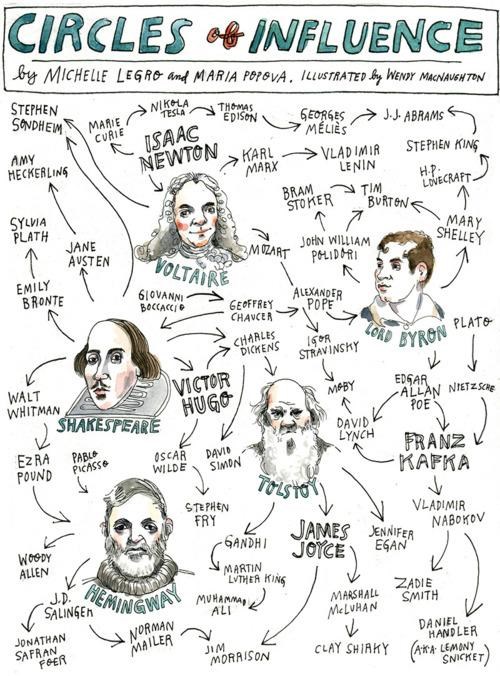 CIRCLES of INFLUENCE
by MICHELLE LEGRO and MARIA POPOVA. ILLUSTRATED by WENDY MACNAUGHTON
STEPHEN
SONDHEIM
MARIE
CURIE
NIKOLA
TESLA
THOMAS
EDISON
GEORGES
MÉLIÈS
J.J. ABRAMS
ISAAC
NEWTON
KARL
MARX
VLADIMIR
LENIN
STEPHEN KING
AMY
HECKERLING
BRAM
STOKER
TIM
BURTON
H.P.
LOVECRAFT
SYLVIA
PLATH
JANE
AUSTEN
VOLTAIRE
MOZART
JOHN WILLIAM
POLIDORI
MARY
SHELLEY
EMILY
BRONTE
GIOVANNI
BOCCACCIO
GEOFFREY
CHAUCER
ALEXANDER
POPE
LORD BYRON
PLATO
CHARLES
DICKENS
IGOR
STRAVINSKY
WALT
WHITMAN
SHAKESPEARE
VICTOR
HUGO
MOBY
EDGAR
ALLAN
POE
NIETZSCHE
DAVID
LYNCH
FRANZ
KAFKA
EZRA
POUND
PABLO
PICASSO
OSCAR
WILDE
DAVID
SIMON
TOLSTOY
STEPHEN
FRY
VLADIMIR
NABOKOV
WOODY
ALLEN
HEMINGWAY
GANDHI
JAMES
JOYCE
JENNIFER
EGAN
MARTIN
LUTHER KING
ZADIE
SMITH
J.D.
SALINGER
MUHAMMAD
ALI
MARSHALL
McLUHAN
JONATHAN
SAFRAN
FOER
NORMAN
MAILER
JIM
MORRISON
CLAY SHIRKY
DANIEL
HANDLER
(A.K.A. LEMONY
SNICKET)